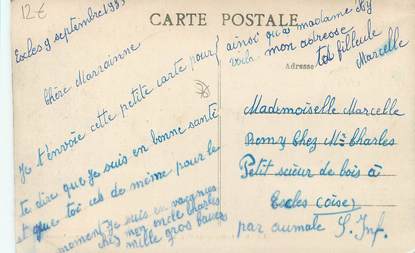 12€
CARTE POSTALE
Escles 9 septembre 193
Chère Marrainne
Je t'envoie cette petite carte pour
te dire que je suis en bonne santé
et que toi ces de même pour le
moment je suis en vacances
chez mon oncle Charles
mille gros baisers
ainsi qu'à madame
voilà mon adresse
ta filleule
Marcelle
Adresse
Mademoiselle Marcelle
Romy Chez Mr Charles
Petit scieur de bois à
Escles (oise)
par aumale S. Inf.